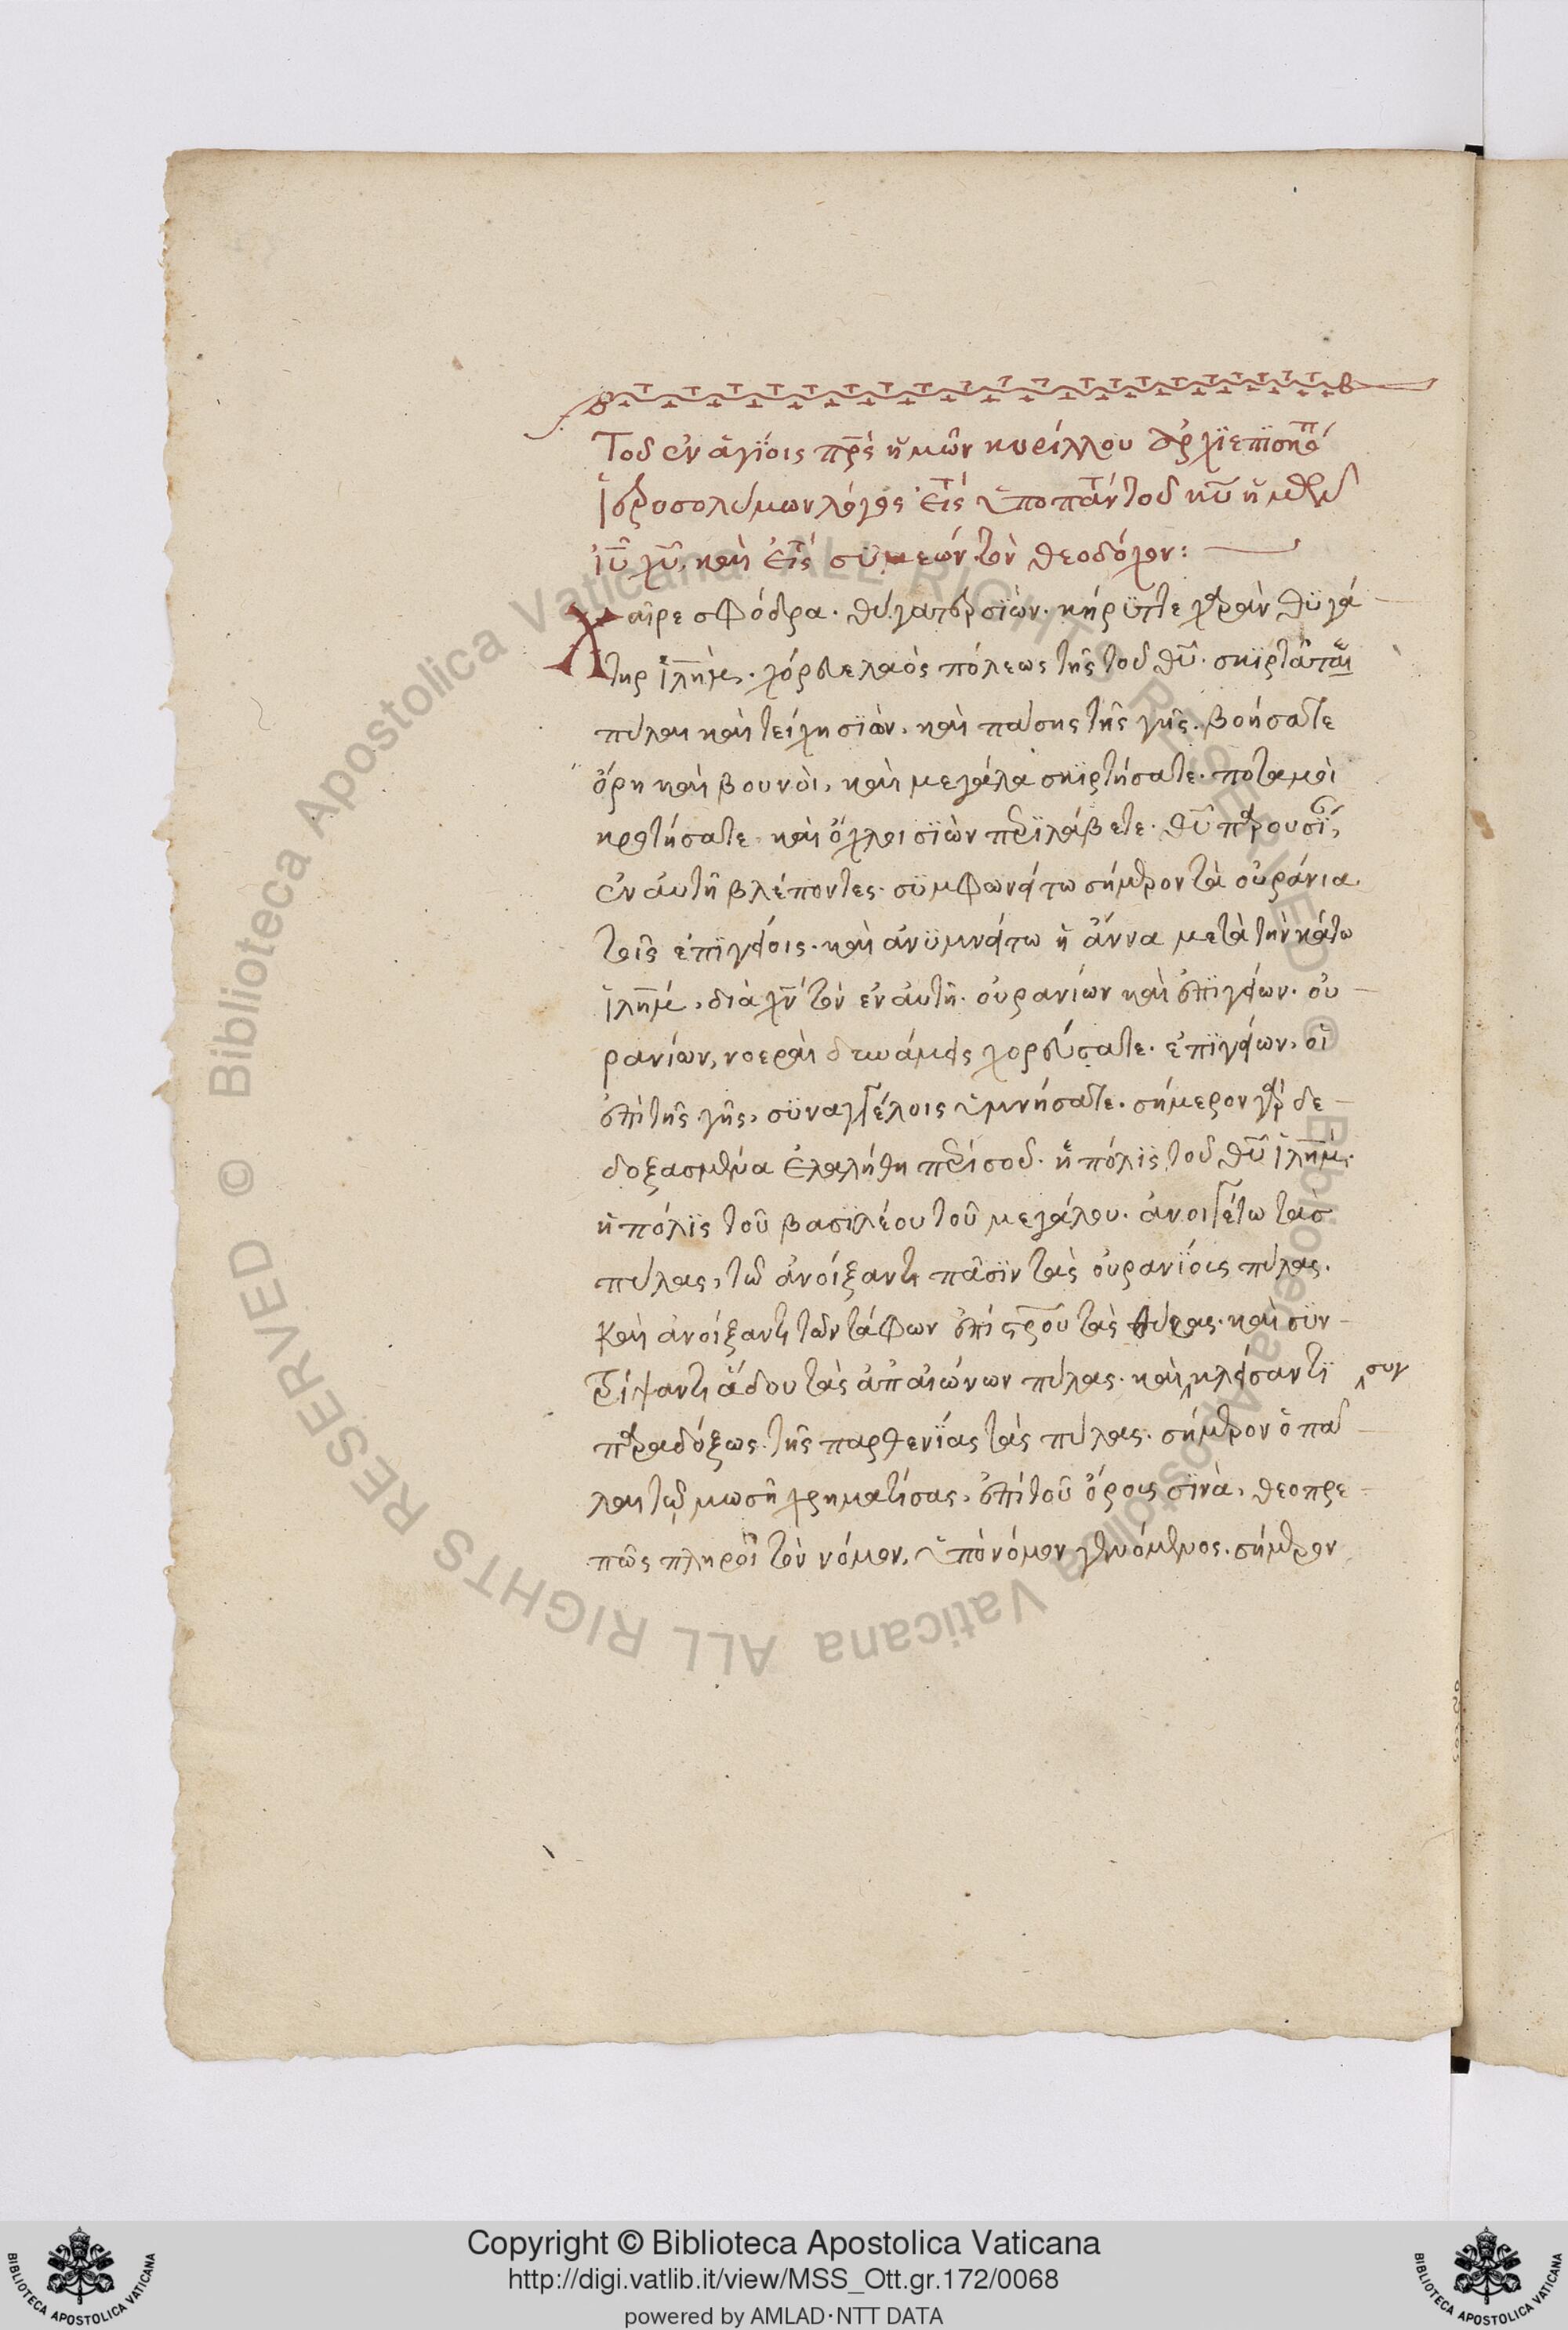 Τοῦ ἐν ἁγΐοις πρ̅ς ἡμῶν κυρίλλου ἀρχϊεπϊσκόπ
ἱεροσολύμων λόγος εἰς τ ὑποπαντ τοῦ κυ̅ ἡμῶν
ιυ̅ χυ̅. καὶ εἰς τ συμεών τὸν θεοδόχον:
Χαῖρε σφόδρα. θύγατερ σϊών. κήρυττε χαρὰν θϋγά
τηρ ἱλη̅μ. χόρευε λαὸς πόλεως τῆς τοῦ θυ̅. σκϊρτᾶτε
πύλαι καὶ τείχη σϊών. καὶ πάσης τῆς γῆς. βοήσατε
ὄρη καὶ βουνοὶ, καὶ μεγάλα σκϊρτήσατε. ποταμοὶ
κροτήσατε. καὶ ὄχλοι σϊὼν περϊλάβετε. θυ̅ παρουσΐ,
ἐν αὐτῆ βλέποντες. σϋμφωνείτω σήμερον τὰ οὐράνια
τοῖς ἐπιγείοις. καὶ ἀνϋμνείτω ἡ ἄννα μετὰ τὴν κάτω
ἱλη̅μ, διὰ χν̅ τὸν ἐν αὐτῆ. οὐρανίων καὶ ἐπϊγείων. οὐ
ρανίων, νοεραὶ δυνάμεις χορεύσατε. ἐπϊγείων, οἱ
ἐπὶ τῆς γῆς, σϋναγγέλοις ὑμνήσατε. σήμερον γὰρ δε
δοξασμένα ἐλαλήθη περί σοῦ. ἡ πόλϊς τοῦ θυ̅ ἱλη̅μ.
ἡ πόλϊς τοῦ βασϊλέου τοῦ μεγάλου. ἀνοιγέτω τὰσ
πύλας, τῶ ἀνοίξαντι πᾶσϊν τὰς οὐρανΐοις πύλας.
καὶ ἀνοίξαντι τῶν τάφων ἐπὶ σρ̅ου τὰς θύρας. καὶ σϋν
τρίψαντι ἅδου τὰς ἀπαιώνων πύλας. καὶ ^κλείσαντϊ ^συγ
παραδόξως. τῆς παρθενΐας τὰς πύλας. σήμερον ὁ πά
λαι τῶ μωσῆ χρηματίσας, ἐπὶ τοῦ ὄρους σϊνὰ, θεοπρε
πῶς πληροῖ τὸν νόμον, ὑπὸ νόμον γενόμενος. σήμερον
Copyright © Biblioteca Apostolica Vaticana
http://digi.vatlib.it/view/MSS_Ott.gr.172/0068
powered by AMLAD·NTT DATA
© Biblioteca Apostolica Vaticana ALL RIGHTS RESERVED © Biblioteca Apostolica Vaticana ALL RIGHTS RESERVED
BIBLIOTECA APOSTOLICA VATICANA
BIBLIOTECA APOSTOLICA VATICANA